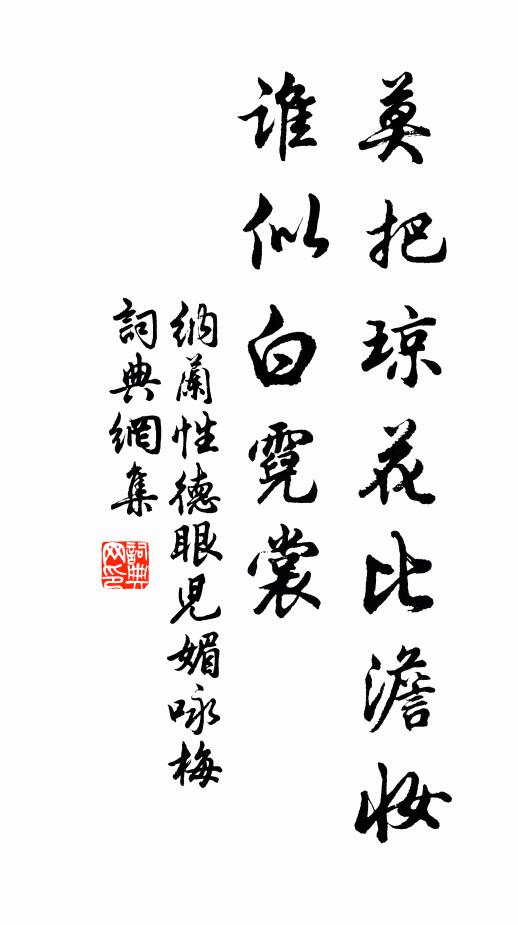 莫把琼花比澹妆
谁似白霓裳
纳蘭性德眼児媚咏梅
詞典網集
詞典网印